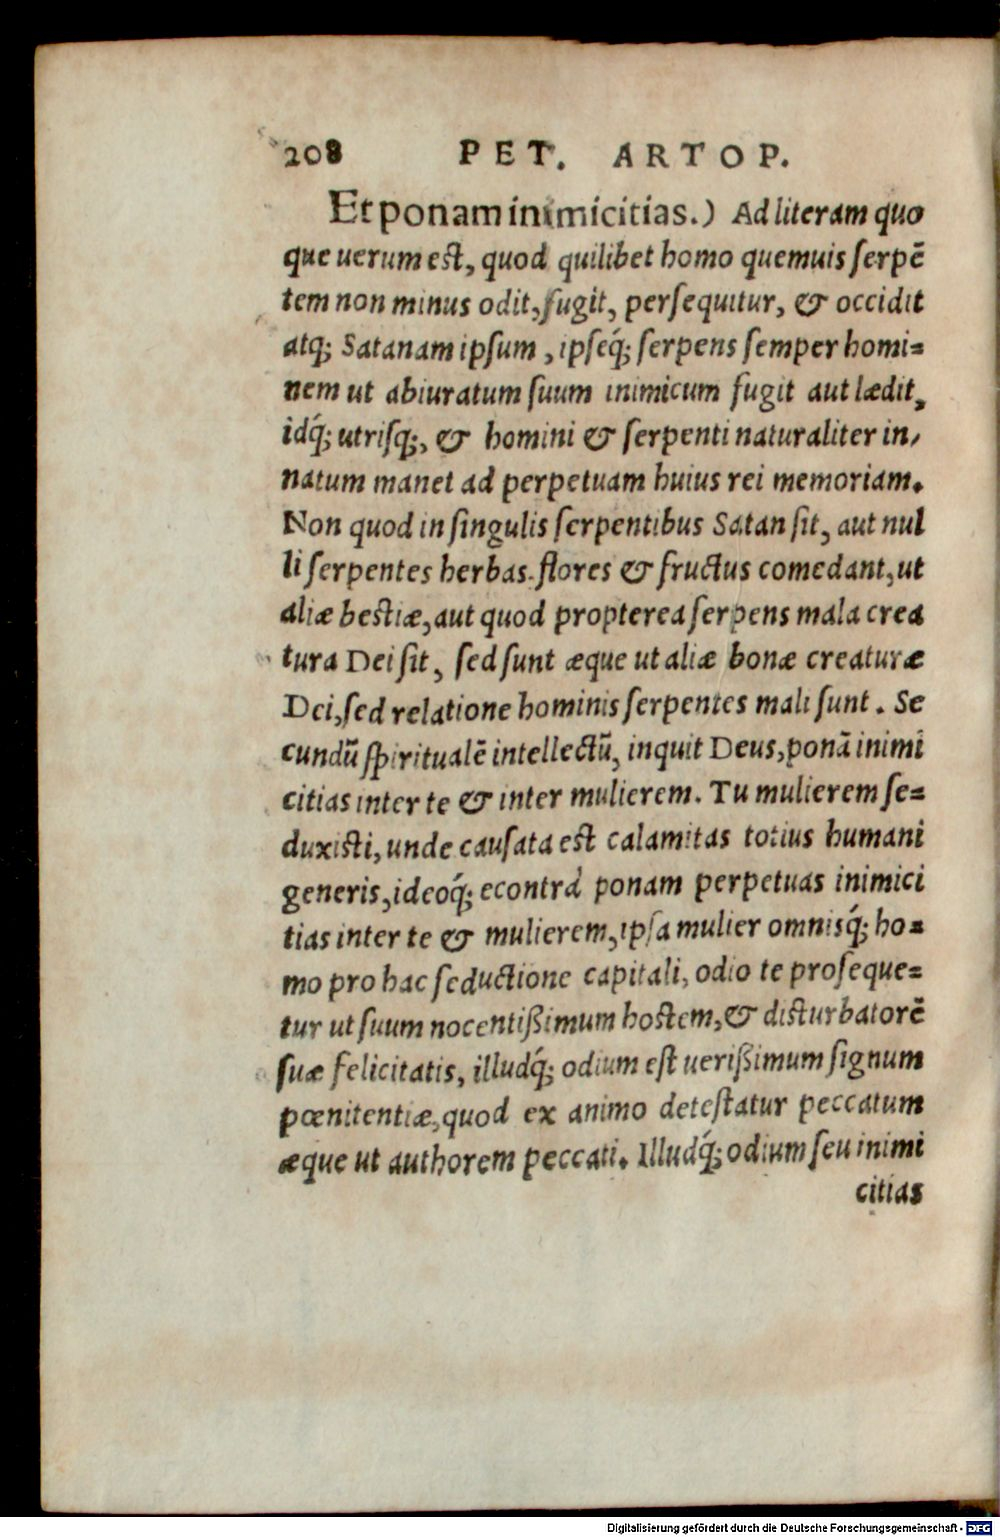 208 PET. ARTOP.
Et ponam inimicitias.) Ad literam quo
que uerum est, quod quilibet homo quemuis serpē
tem non minus odit, fugit, persequitur, & occidit
atq; Satanam ipsum, ipseq́; serpens semper homi=
nem ut abiuratum suum inimicum fugit aut lædit,
idq́; utrisq;, & homini & serpenti naturaliter in,
natum manet ad perpetuam huius rei memoriam.
Non quod in singulis serpentibus Satan sit, aut nul
li serpentes herbas. flores & fructus comedant, ut
aliæ bestiæ, aut quod propterea serpens mala crea
tura Dei sit, sed sunt æque ut aliæ bonæ creaturæ
Dei, sed relatione hominis serpentes mali sunt. Se
cundū spiritualē intellectū, inquit Deus, ponā inimi
citias inter te & inter mulierem. Tu mulierem se=
duxisti, unde causata est calamitas totius humani
generis, ideoq́; econtrà ponam perpetuas inimici
tias inter te & mulierem, ipsa mulier omnisq́; ho=
mo pro hac seductione capitali, odio te proseque=
tur ut suum nocentißimum hostem, & disturbatorē
suæ felicitatis, illudq́; odium est uerißimum signum
pœnitentiæ, quod ex animo detestatur peccatum
æque ut authorem peccati. Illudq́; odium seu inimi
citias
Digitalisierung gefördert durch die Deutsche Forschungsgemeinschaft - DFG